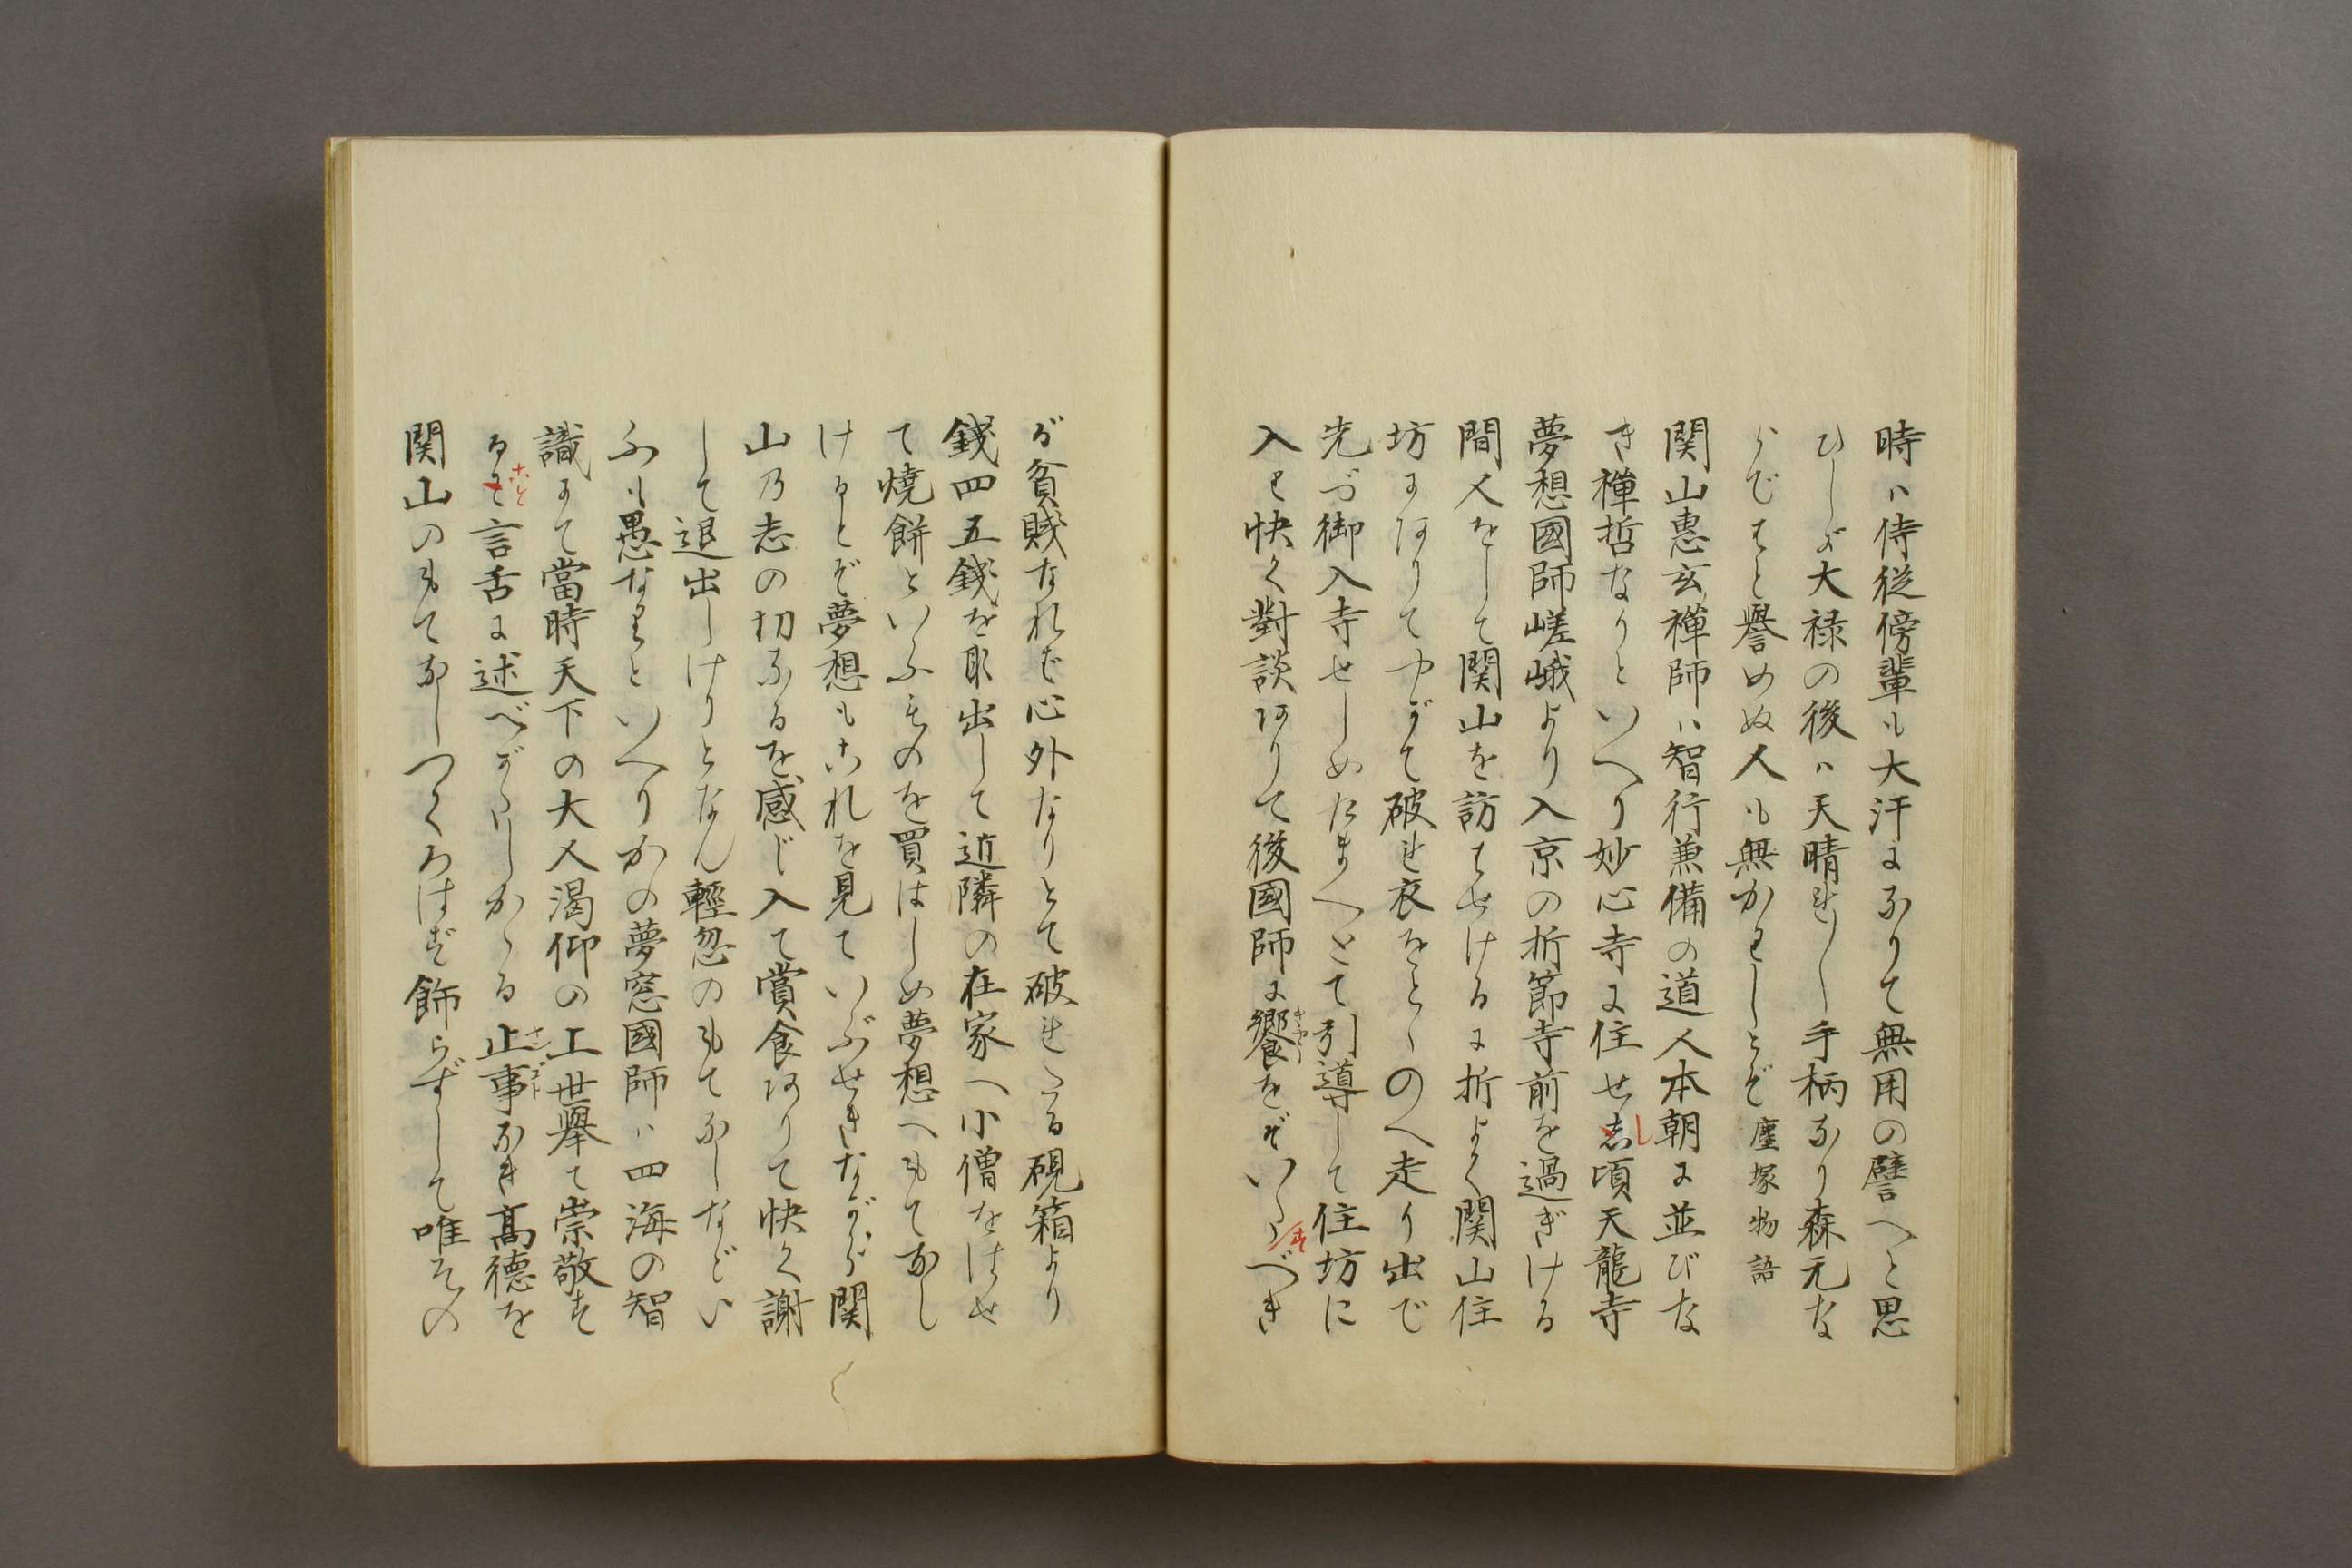 時ハ侍従傍輩も大汗になりて無用の譬へと思
ひしが大禄の後ハ天晴れし手柄なり森元な
らでハと譽めぬ人も無かりしとぞ 塵塚物語
関山惠玄禅師ハ智行兼備の道人本朝に並びな
き禅哲なりといへり妙心寺に住せし頃天龍寺
夢想國師嵯峨より入京の折節寺前を過ぎける
間人をして関山を訪はせけるに折よく関山住
坊にありてやがて破れ衣をとゝのへ走り出で
先づ御入寺せしめたまへとて引導して住坊に
入り快く對談ありて後國師に饗をぞいたすべき
が貧賎なれば心外なりとて破れたる硯箱より
銭四五銭を取出して近隣の在家へ小僧をはせ
て焼餅といふものを買はしめ夢想へもてなし
けるとぞ夢想もこれを見ていぶせきながら関
山乃志の切なるを感じ入て賞食ありて快く謝
して退出しけりとなん輕忽のもてなしなどい
ふも愚なりといへりかの夢窓國師ハ四海の智
識にて當時天下の大人渇仰の上世擧て崇敬す
ること言舌に述べがたしかゝる止事なき髙德を
関山のもてなしつくろはず飾らずして唯その